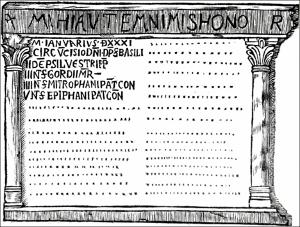 MIHI AUTEM NIMIS HONOR
M·IANUĀRIUS·D·XXXI
CIRCVCISIO DÑI·DP̄S BASILI
IDEP SILVESTRI EP̄P
IIII N̄S GORDII MR̄
IIII N̄S MITROPHANI PAT̄ CON
VN̄S EPIPHANI PAT̄ CON